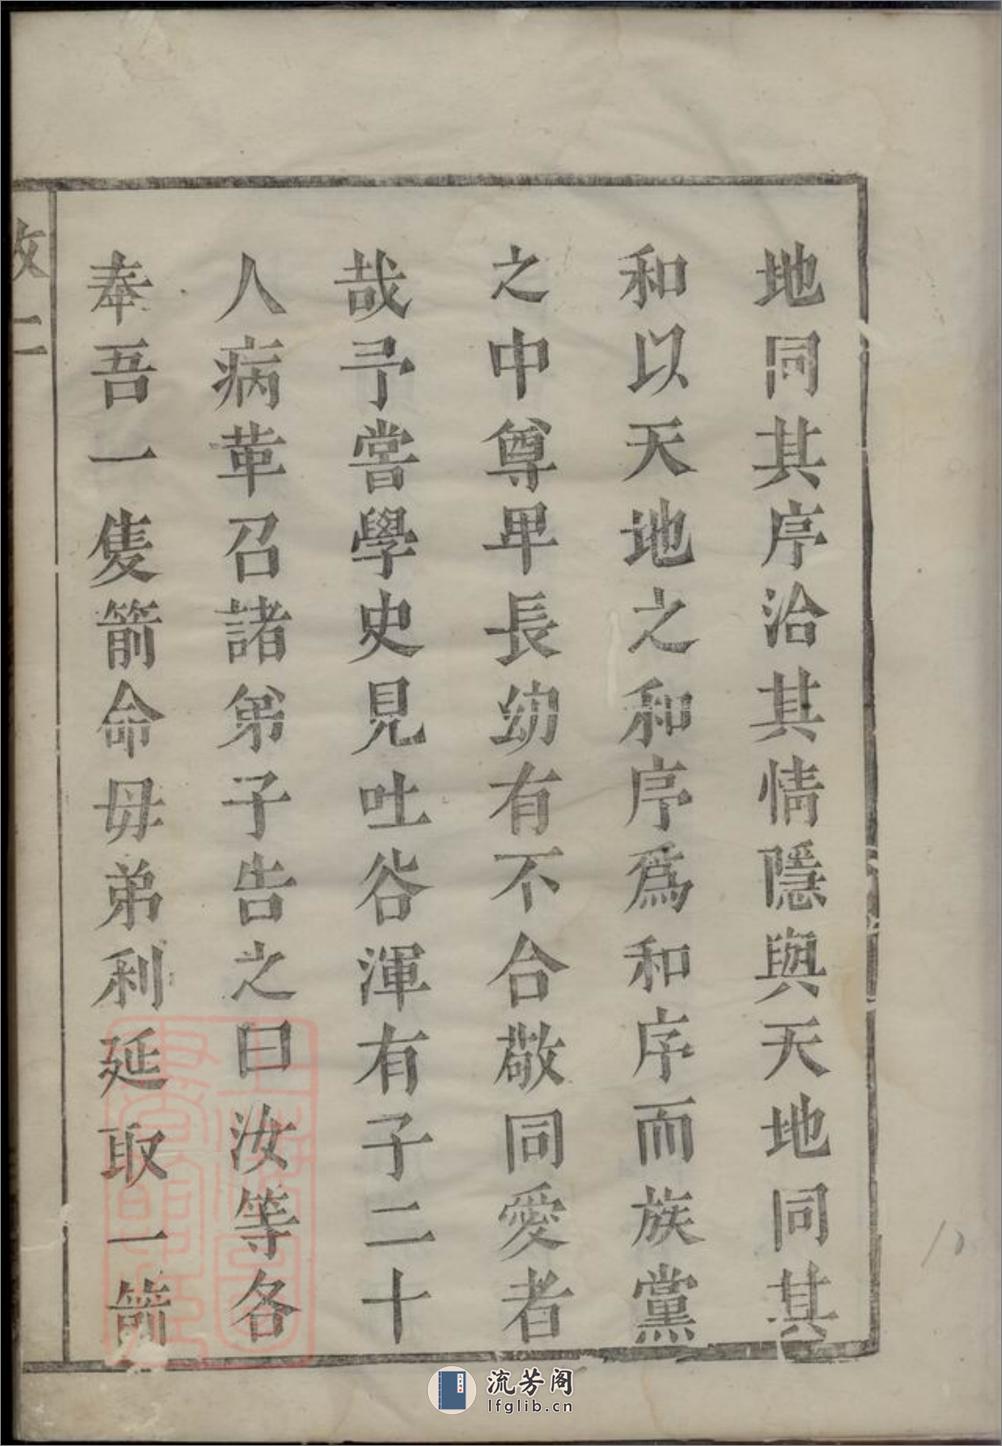 地同其序洽其情隱與天地同其
和以天地之和序爲和序而族黨
之中尊卑長幼有不合敬同愛者
哉予嘗學史見吐谷渾有子二十
人病革召諸弟子告之曰汝等各
奉吾一隻箭命毋弟利延取一箭
二
流芳阁
lfglib.cn